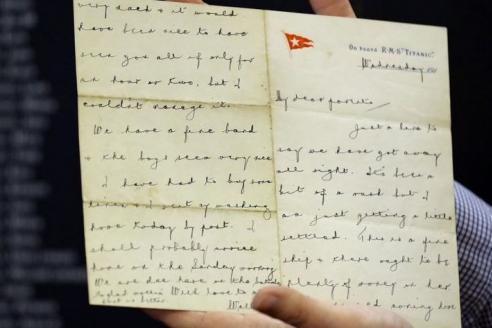 On board R.M.S. "Titanic".
Wednesday
My dear parents,
Just a line to
say we have got away
all right. It's been a
bit of a rush but I
am just getting a little
settled. This is a fine
ship & there ought to be
plenty of money on her
missed coming home
very much & it would
have been nice to have
seen you all if only for
an hour or two, but I
couldn't manage it.
We have a fine band
& the boys seem very nice
I have had to buy some
linen & sent my washing
home today by post. I
shall probably arrive
home on the Sunday morning
We are due here on the
glad mother's
foot is better. With love to